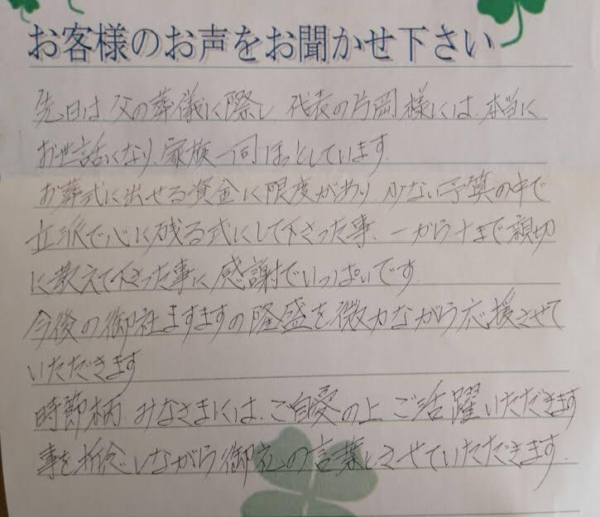 お客様のお声をお聞かせ下さい
先日は父の葬儀に際し 代表の片岡様には、本当に
お世話になり、家族一同ほっとしています。
お葬式に出せる資金に限度があり 少ない予算の中で
立派で心に残る式にして下さった事、一から十まで親切
に教えて下さった事に感謝でいっぱいです
今後の御社ますますの隆盛を微力ながら応援させて
いただきます
時節柄 みなさまには、ご自愛の上 ご活躍いただきます
事を祈念しながら御礼の言葉とさせていただきます。